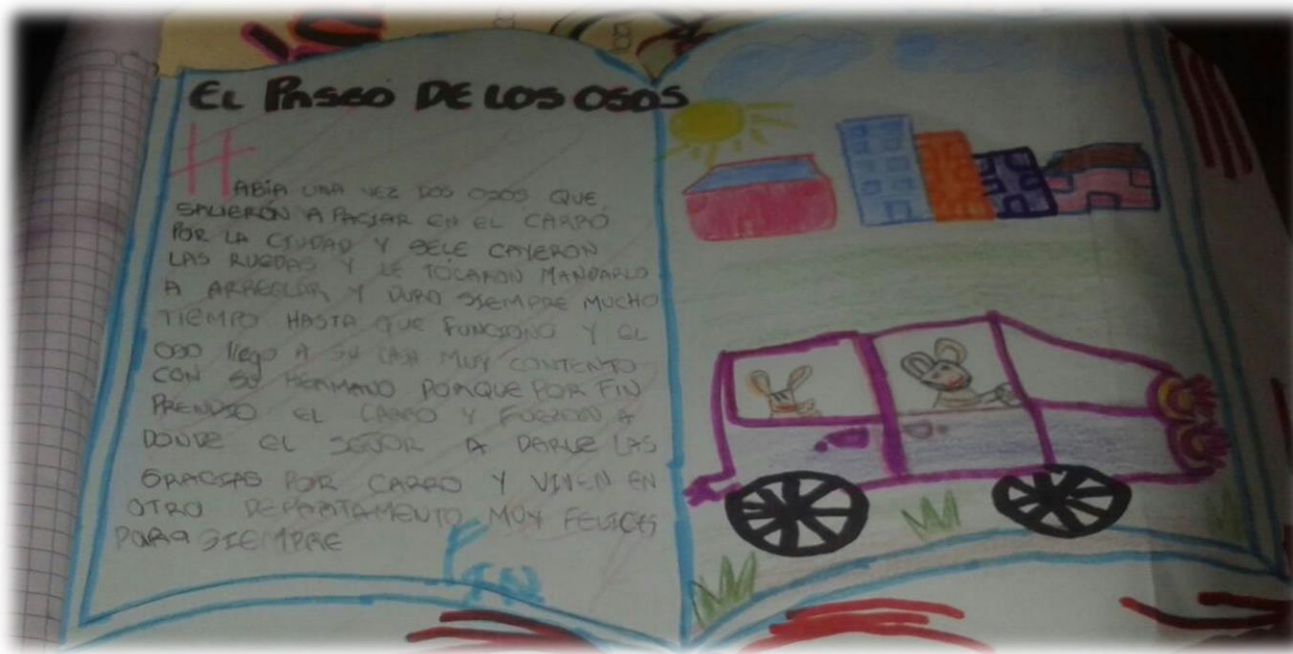 EL PASEO DE LOS OSOS
HABÍA UNA VEZ DOS OSOS QUE
SALIERÓN A PASIAR EN EL CARRO
POR LA CIUDAD Y SELE CAYERON
LAS RUEDAS Y LE TOCARON MANDARLO
A ARREGLAR Y DURO SIEMPRE MUCHO
TIEMPO HASTA QUE FUNCIONO Y EL
OSO llego A SU CASA MUY CONTENTO
CON SU HERMANO PORQUE POR FIN
PRENDIO EL CARRO Y FUERON A
DONDE EL SEÑOR A DARLE LAS
GRACIAS POR CARRO Y VIVEN EN
OTRO DEPARTAMENTO MUY FELICES
PARA SIEMPRE
Fin